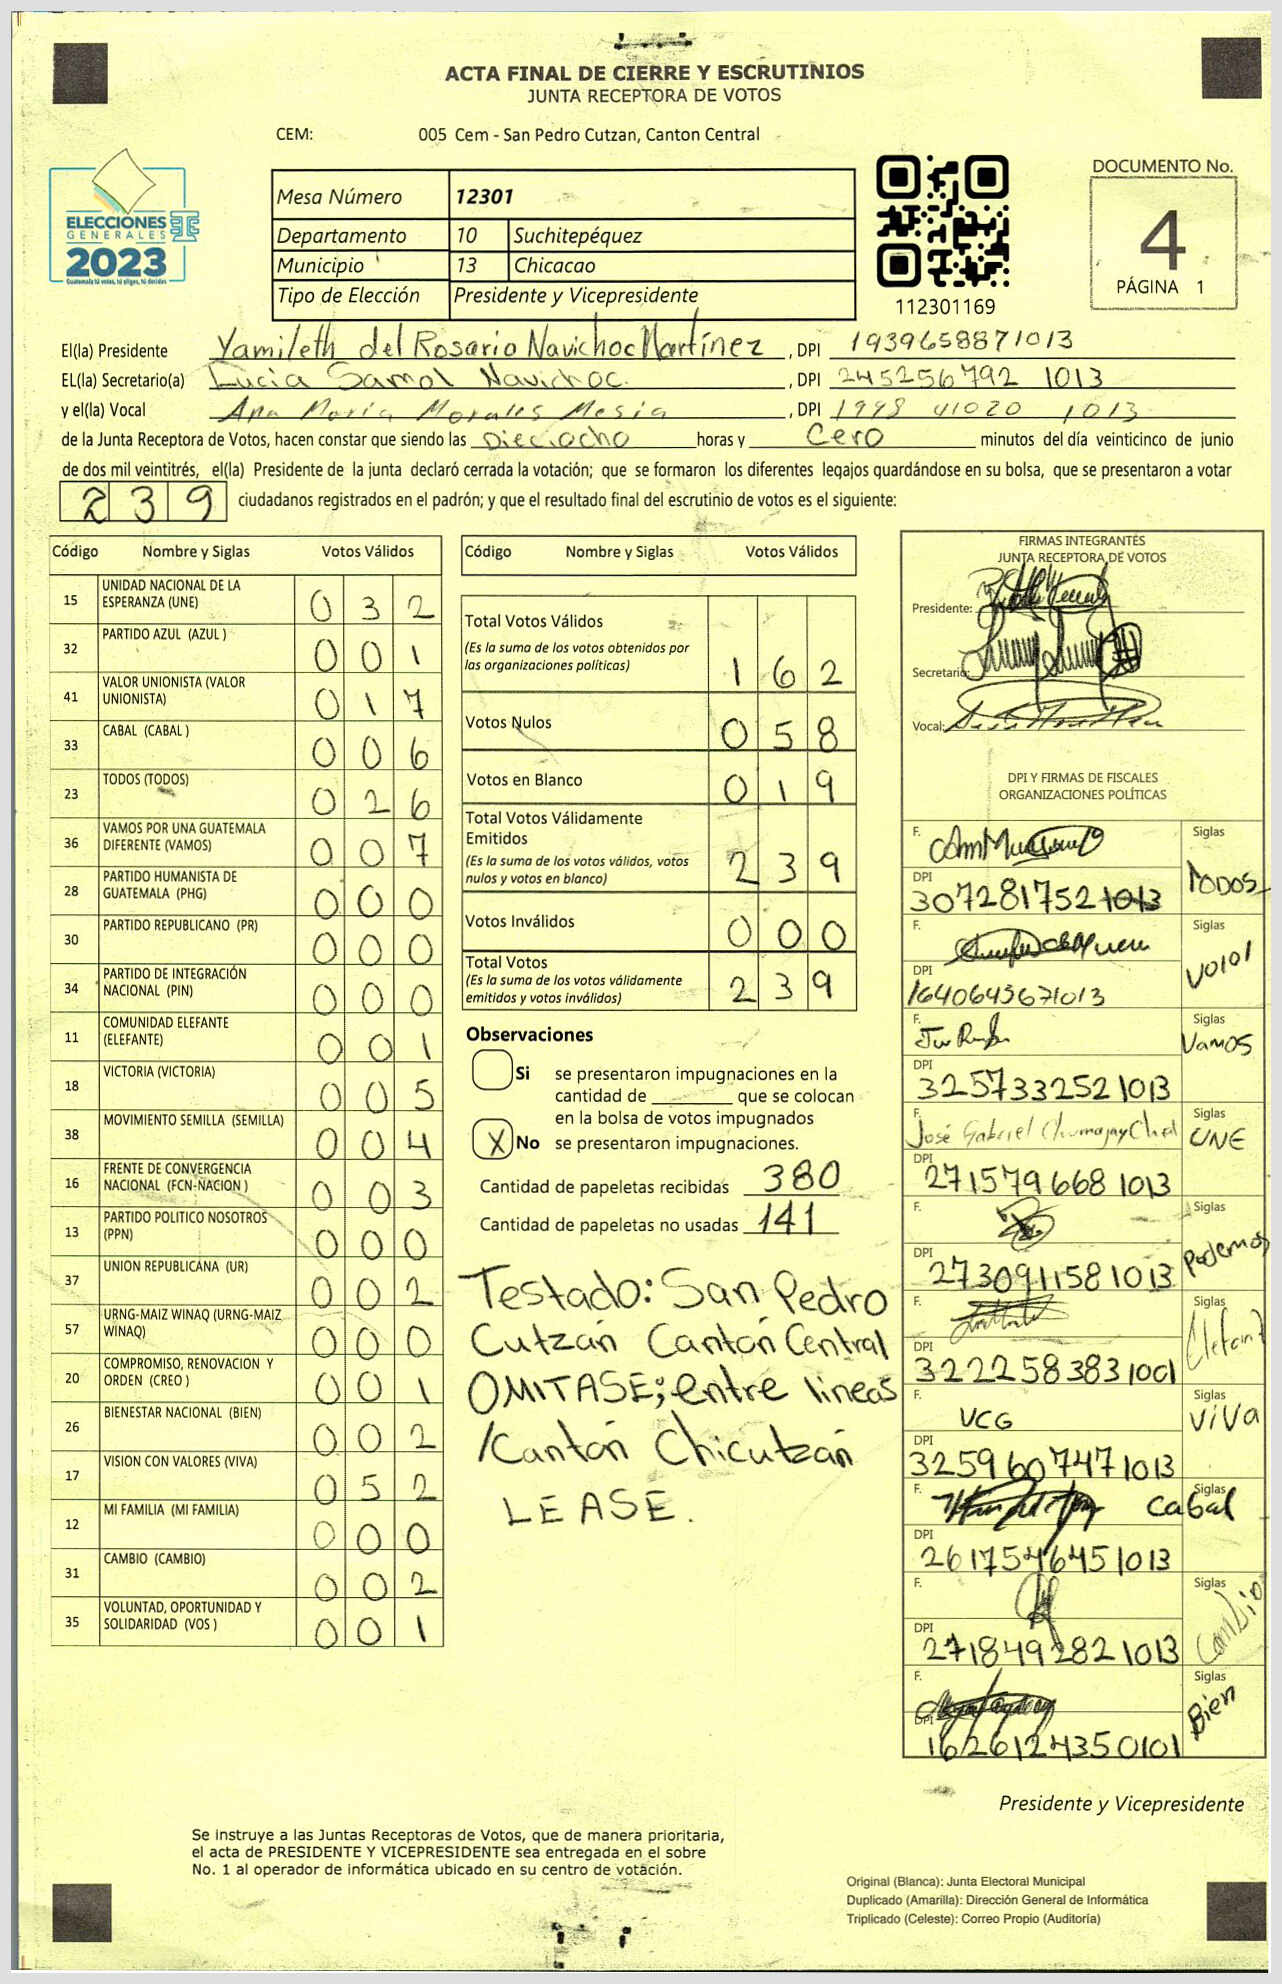 ACTA FINAL DE CIERRE Y ESCRUTINIOS
JUNTA RECEPTORA DE VOTOS
CEM: 005 Cem - San Pedro Cutzan, Canton Central
DOCUMENTO No.
4
PÁGINA 1
ELECCIONES
GENERALES
2023
Guatemala tú votas, tú eliges, tú decides
Mesa Número 12301
Departamento 10 Suchitepéquez
Municipio 13 Chicacao
Tipo de Elección Presidente y Vicepresidente
112301169
El(la) Presidente Yamileth del Rosario Navichoc Martínez , DPI 1939658871013
EL(la) Secretario(a) Lucia Samol Navichoc. , DPI 245256792 1013
y el(la) Vocal Ana María Morales Mesia , DPI 1998 41020 1013
de la Junta Receptora de Votos, hacen constar que siendo las Dieciocho horas y Cero minutos del día veinticinco de junio
de dos mil veintitrés, el(la) Presidente de la junta declaró cerrada la votación; que se formaron los diferentes legajos guardándose en su bolsa, que se presentaron a votar
239 ciudadanos registrados en el padrón; y que el resultado final del escrutinio de votos es el siguiente:
Código Nombre y Siglas Votos Válidos
15 UNIDAD NACIONAL DE LA ESPERANZA (UNE) 032
32 PARTIDO AZUL (AZUL ) 001
41 VALOR UNIONISTA (VALOR UNIONISTA) 017
33 CABAL (CABAL ) 006
23 TODOS (TODOS) 026
36 VAMOS POR UNA GUATEMALA DIFERENTE (VAMOS) 007
28 PARTIDO HUMANISTA DE GUATEMALA (PHG) 000
30 PARTIDO REPUBLICANO (PR) 000
34 PARTIDO DE INTEGRACIÓN NACIONAL (PIN) 000
11 COMUNIDAD ELEFANTE (ELEFANTE) 001
18 VICTORIA (VICTORIA) 005
38 MOVIMIENTO SEMILLA (SEMILLA) 004
16 FRENTE DE CONVERGENCIA NACIONAL (FCN-NACION ) 003
13 PARTIDO POLITICO NOSOTROS (PPN) 000
37 UNION REPUBLICANA (UR) 002
57 URNG-MAIZ WINAQ (URNG-MAIZ WINAQ) 000
20 COMPROMISO, RENOVACION Y ORDEN (CREO ) 001
26 BIENESTAR NACIONAL (BIEN) 002
17 VISION CON VALORES (VIVA) 052
12 MI FAMILIA (MI FAMILIA) 000
31 CAMBIO (CAMBIO) 002
35 VOLUNTAD, OPORTUNIDAD Y SOLIDARIDAD (VOS ) 001
Código Nombre y Siglas Votos Válidos
Total Votos Válidos 162
(Es la suma de los votos obtenidos por
las organizaciones políticas)
Votos Nulos 058
Votos en Blanco 019
Total Votos Válidamente
Emitidos 239
(Es la suma de los votos válidos, votos
nulos y votos en blanco)
Votos Inválidos 000
Total Votos 239
(Es la suma de los votos válidamente
emitidos y votos inválidos)
Observaciones
Si se presentaron impugnaciones en la
cantidad de ________ que se colocan
en la bolsa de votos impugnados
X No se presentaron impugnaciones.
Cantidad de papeletas recibidas 380
Cantidad de papeletas no usadas 141
Testado: San Pedro
Cutzán Cantón Central
OMITASE; entre lineas
/Cantón Chicutzán
LEASE.
FIRMAS INTEGRANTES
JUNTA RECEPTORA DE VOTOS
Presidente:
Secretario:
Vocal:
DPI Y FIRMAS DE FISCALES
ORGANIZACIONES POLÍTICAS
F. Siglas TODOS
DPI 3072817521013
F. Siglas
DPI 1640643671013
F. Siglas Vamos
DPI 3257332521013
F. José Gabriel Siglas UNE
DPI 2715796681013
F. Siglas Podemos
DPI 2730911581013
F. Siglas
DPI 3222583831001
F. VCG Siglas ViVa
DPI 3259607471013
F. Siglas Cabal
DPI 2617546451013
F. Siglas Cambio
DPI 2718492821013
F. Siglas Bien
DPI 1626124350101
Presidente y Vicepresidente
Se instruye a las Juntas Receptoras de Votos, que de manera prioritaria,
el acta de PRESIDENTE Y VICEPRESIDENTE sea entregada en el sobre
No. 1 al operador de informática ubicado en su centro de votación.
Original (Blanca): Junta Electoral Municipal
Duplicado (Amarilla): Dirección General de Informática
Triplicado (Celeste): Correo Propio (Auditoría)